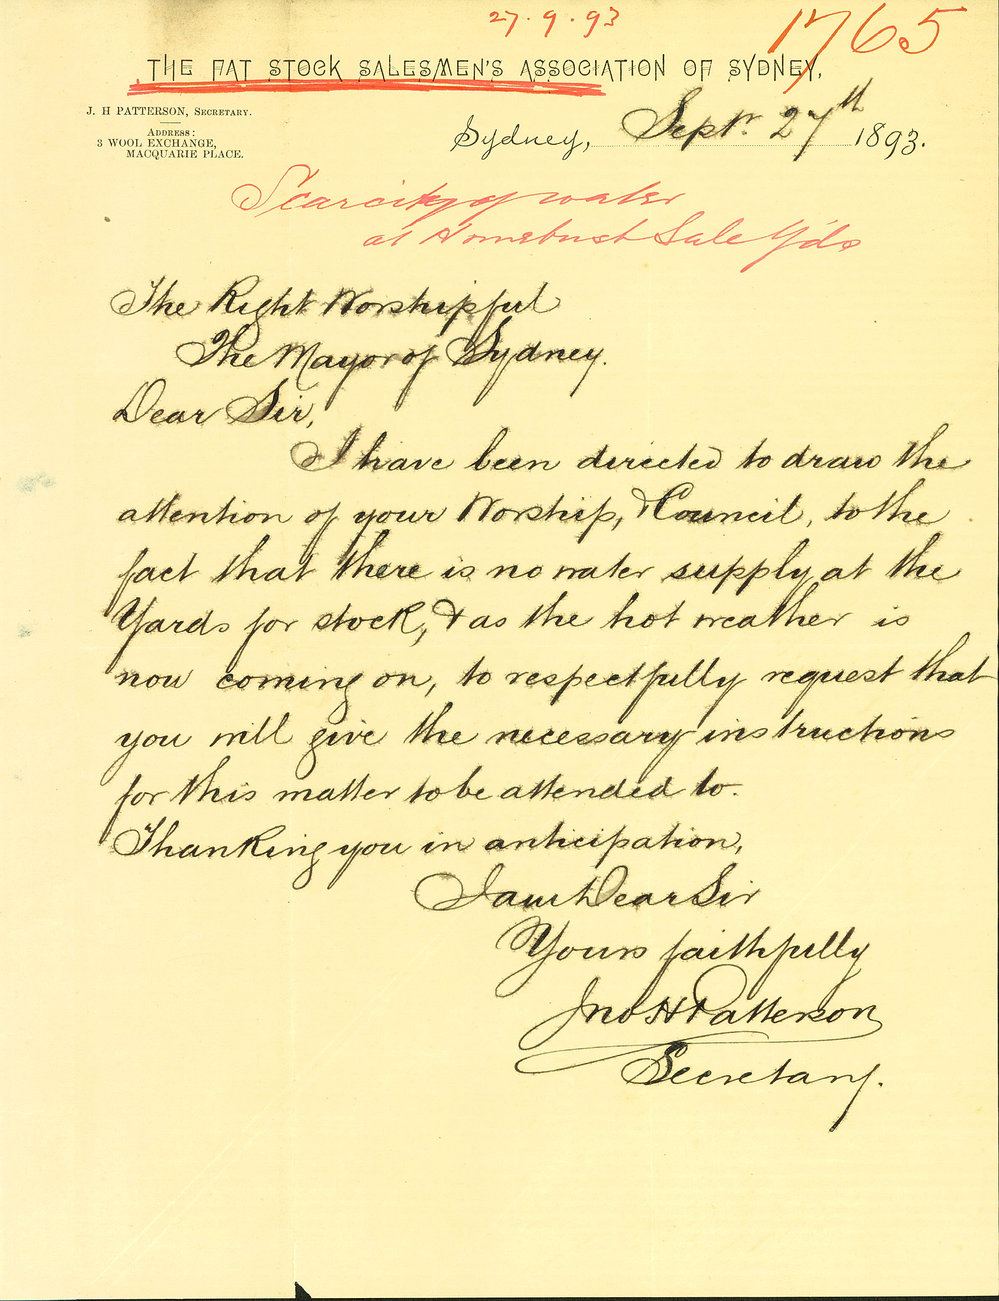 27.9.93
1765
THE FAT STOCK SALESMEN'S ASSOCIATION OF SYDNEY.
J. H PATTERSON, SECRETARY.
ADDRESS:
3 WOOL EXCHANGE,
MACQUARIE PLACE.
Sydney, Septr. 27th 1893.
Scarcity of water
at Homebush Sale Yds
The Right Worshipful
The Mayor of Sydney.
Dear Sir,
I have been directed to draw the
attention of your Worship, & Council, to the
fact that there is no water supply at the
Yards for stock, & as the hot weather is
now coming on, to respectfully request that
you will give the necessary instructions
for this matter to be attended to.
Thanking you in anticipation,
I am Dear Sir
Yours faithfully
Jno H Patterson
Secretary.